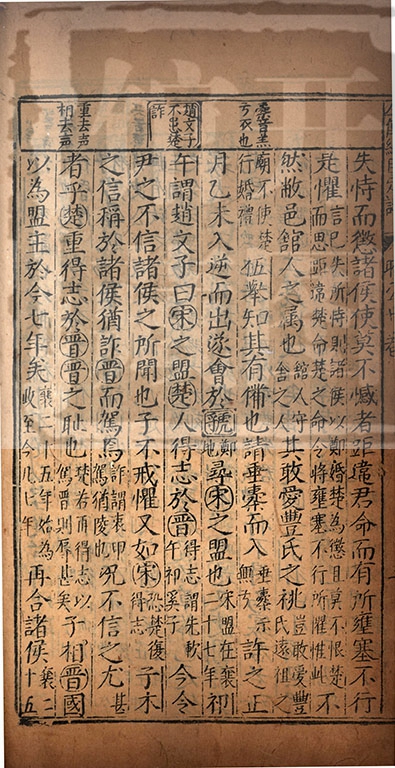 櫜音羔
弓衣也
趙文子
不出楚
詐
重去声
相去声
失恃而懲諸侯使莫不憾者距違君命而有所壅塞不行
是懼言己失所恃則諸侯以鄭婚楚為懲且莫不恨楚而思距違楚命楚之命令將壅塞不行所懼惟此不
然敝邑館人之属也館人守舍之人其敢愛豐氏之祧豈敢愛豐氏遠祖之
廟不使楚行婚禮伍舉知其有備也請垂櫜而入垂櫜示無弓許之正
月乙未入逆而出遂會於虢鄭地尋宋之盟也宋盟在襄二十七年祁
午謂趙文子曰宋之盟楚人得志於晉得志謂先歃午祁奚子今令
尹之不信諸侯之所聞也子不戒懼又如宋恐楚復得志子木
之信稱於諸侯猶詐晉而駕焉詐謂衷甲駕猶陵也况不信之尤甚
者乎楚重得志於晉晉之恥也楚若再得志以駕晉則辱甚矣子相晉國
以為盟主於今七年矣襄二十五年始為政至今凡七年再合諸侯襄二十五